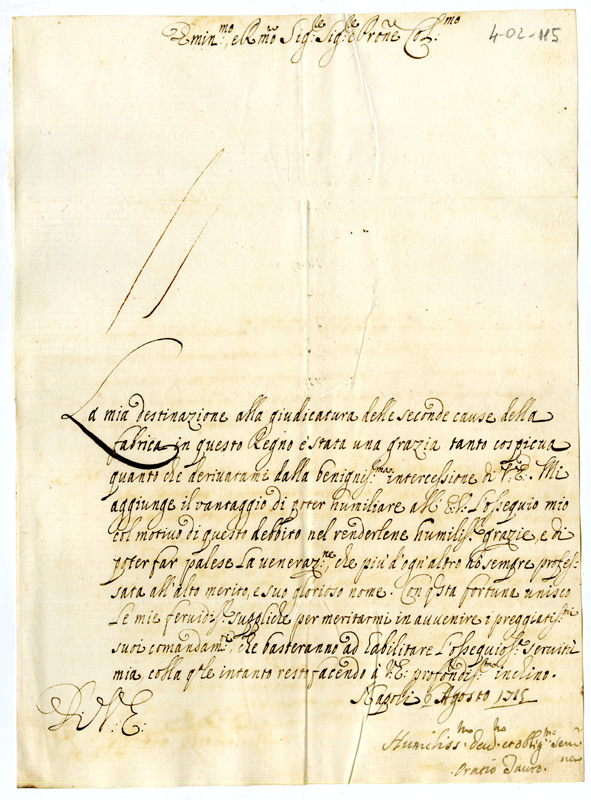 Emin.mo, e R.mo Sig.re Sig.re e Prone Col.mo
4-02-115
La mia destinazione alla giudicatura delle seconde cause della
fabrica in questo Regno è stata una grazia tanto cospicua
quanto che derivatami dalla benignis.ma intercessione di V.E. Mi
aggiunge il vantaggio di poter humiliare all'E.V. l'ossequio mio
col motivo di questo debbito nel renderlene humilis.e grazie, e di
poter far palese la veneraz.ne, che più d'ogn'altro hò sempre profes-
sata all'alto merito, e suo glorioso nome. Con q.sta fortuna unisco
le mie fervidis.e suppliche per meritarmi in avvenire i preggiatis.mi
suoi comandam.ti, che basteranno ad habilitare l'ossequios.a servitù
mia, colla q.le intanto resto facendo a V.E. profondis.mo inchino.
Napoli 6 Agosto 1715
D. V. E.
Humiliss.mo dev.mo et oblig.mo serv.
vero
Oratio